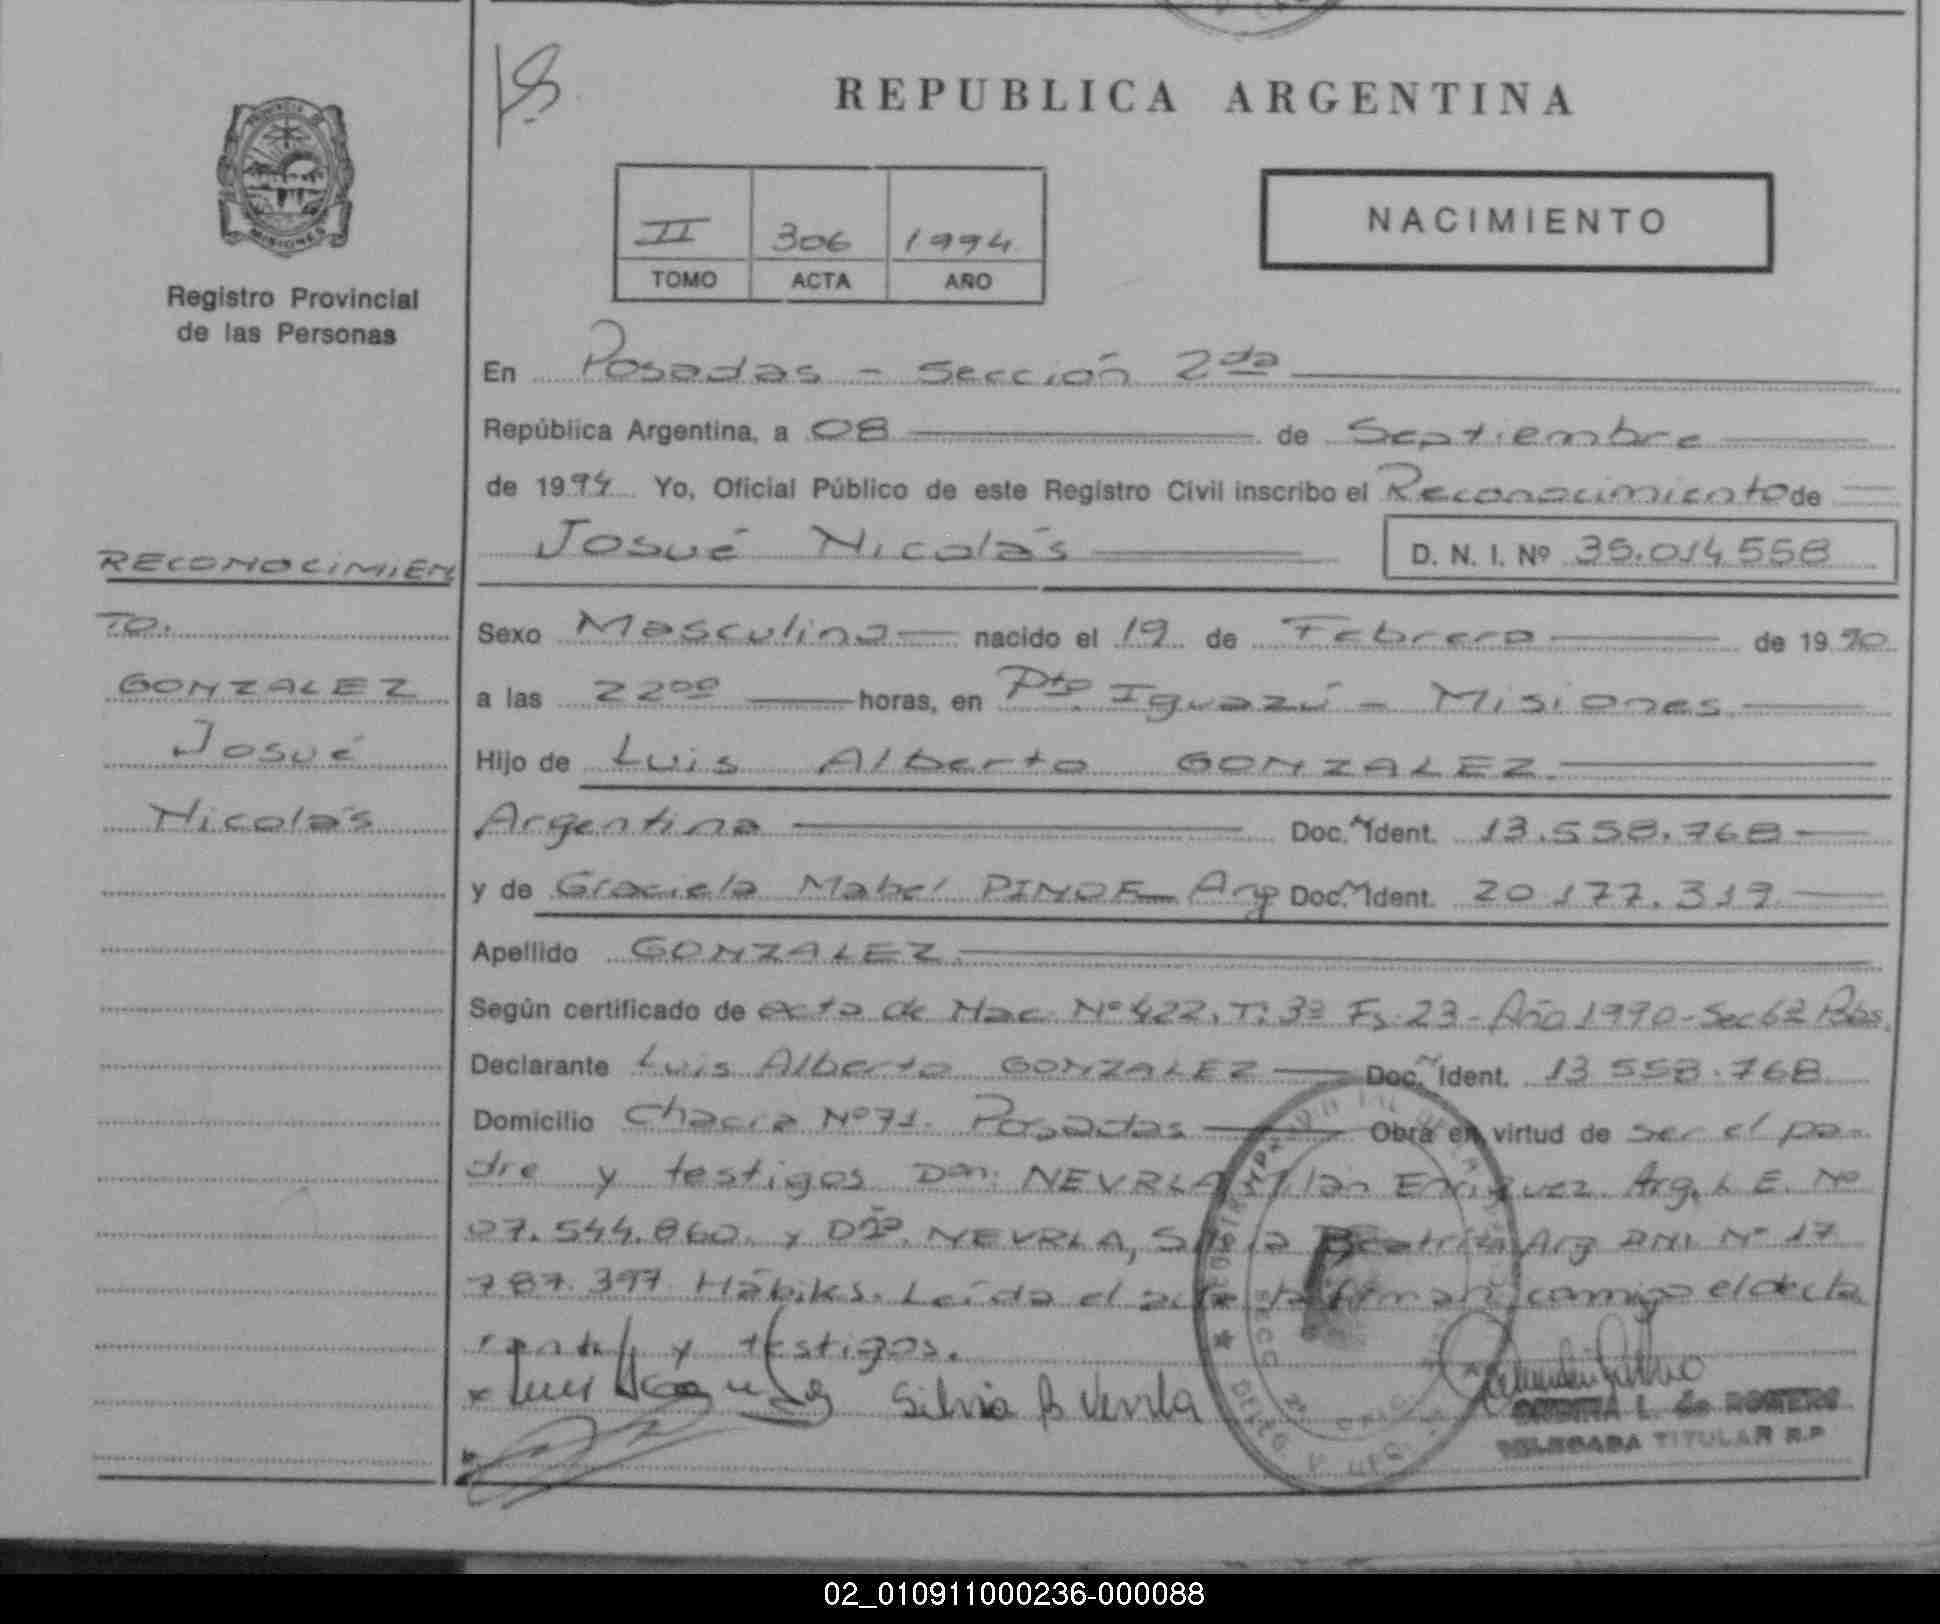 REPUBLICA ARGENTINA
PROVINCIA DE
MISIONES
Registro Provincial
de las Personas
II 306 1994
TOMO ACTA AÑO
NACIMIENTO
En Posadas - Sección 2da
República Argentina, a 08 de Septiembre
de 1994 Yo, Oficial Público de este Registro Civil inscribo el Reconocimiento de
Josué Nicolás D. N. I. Nº 35.014558
RECONOCIMIEN
TO.
GONZALEZ
Josué
Nicolás
Sexo Masculino nacido el 19 de Febrero de 1990
a las 2200 horas, en Pto. Iguazú - Misiones
Hijo de Luis Alberto GONZALEZ
Argentina Doc. Ident. 13.558.768
y de Graciela Mabel Arg Doc. Ident. 20 177.319
Apellido GONZALEZ
Según certificado de acta de Nac. Nº 422. Tº 3º Fs. 23 - Año 1990 - Sec 6ª
Declarante Luis Alberto GONZALEZ Doc. Ident. 13 558.768
Domicilio Chacra Nº 71. Posadas Obra en virtud de ser el pa-
dre y testigos Don: NEVRLA Milan Enriquez Arg. L E. Nº
07.544.860. y Dña. NEVRLA, Silvia Beatriz Arg DNI Nº 17
787.397 Hábiles. Leída el acta la firman conmigo el decla
rante y testigos.
Silvia B Nevrla
L. de ROMERO
DELEGADA TITULAR R.P
02_010911000236-000088